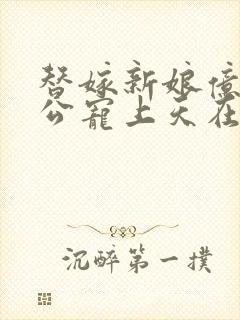 替嫁新娘亿
公宠上天在
沉醉第一撲